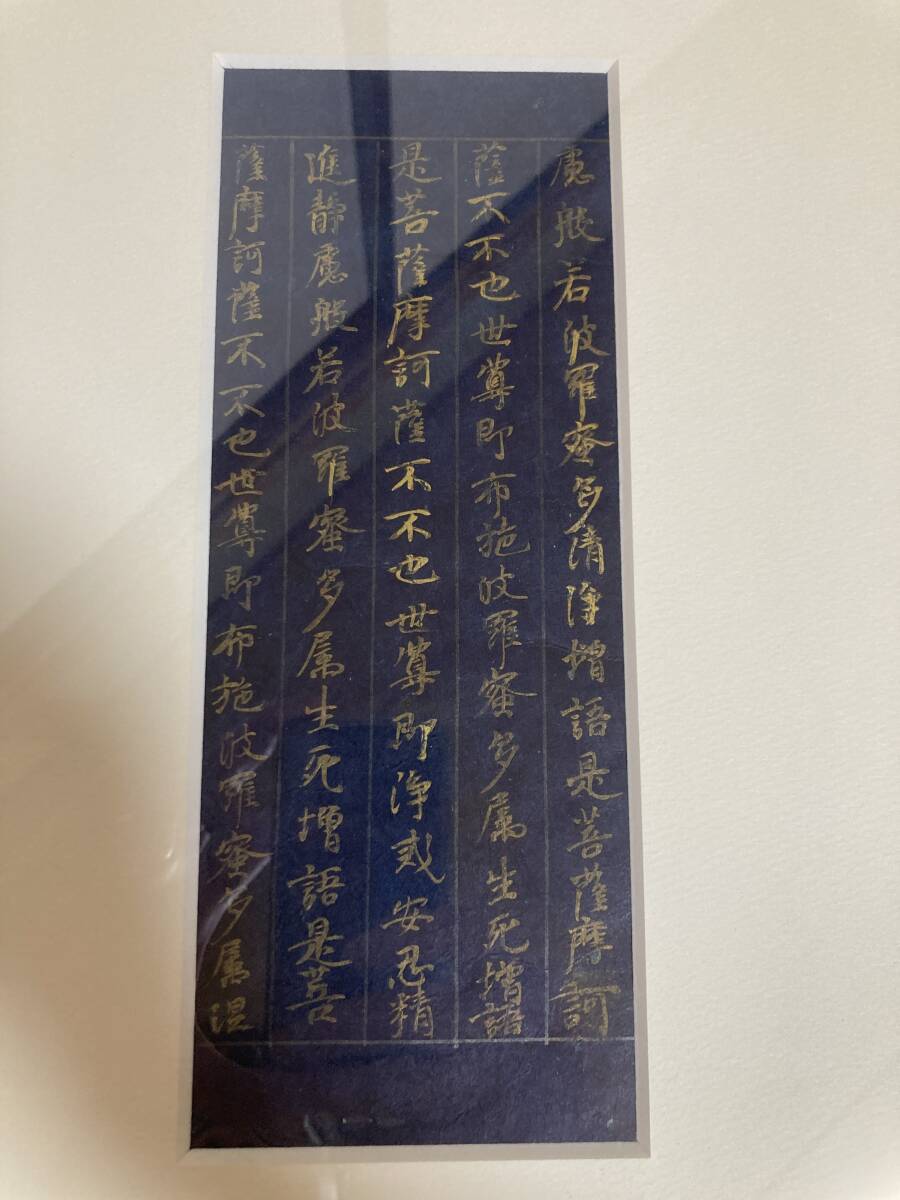 慮般若波羅蜜多清淨增語是菩薩摩訶
薩不不也世尊即布施波羅蜜多属生死增語
是菩薩摩訶薩不不也世尊即浄戒安忍精
進静慮般若波羅蜜多属生死增語是菩
薩摩訶薩不不也世尊即布施波羅蜜多属涅